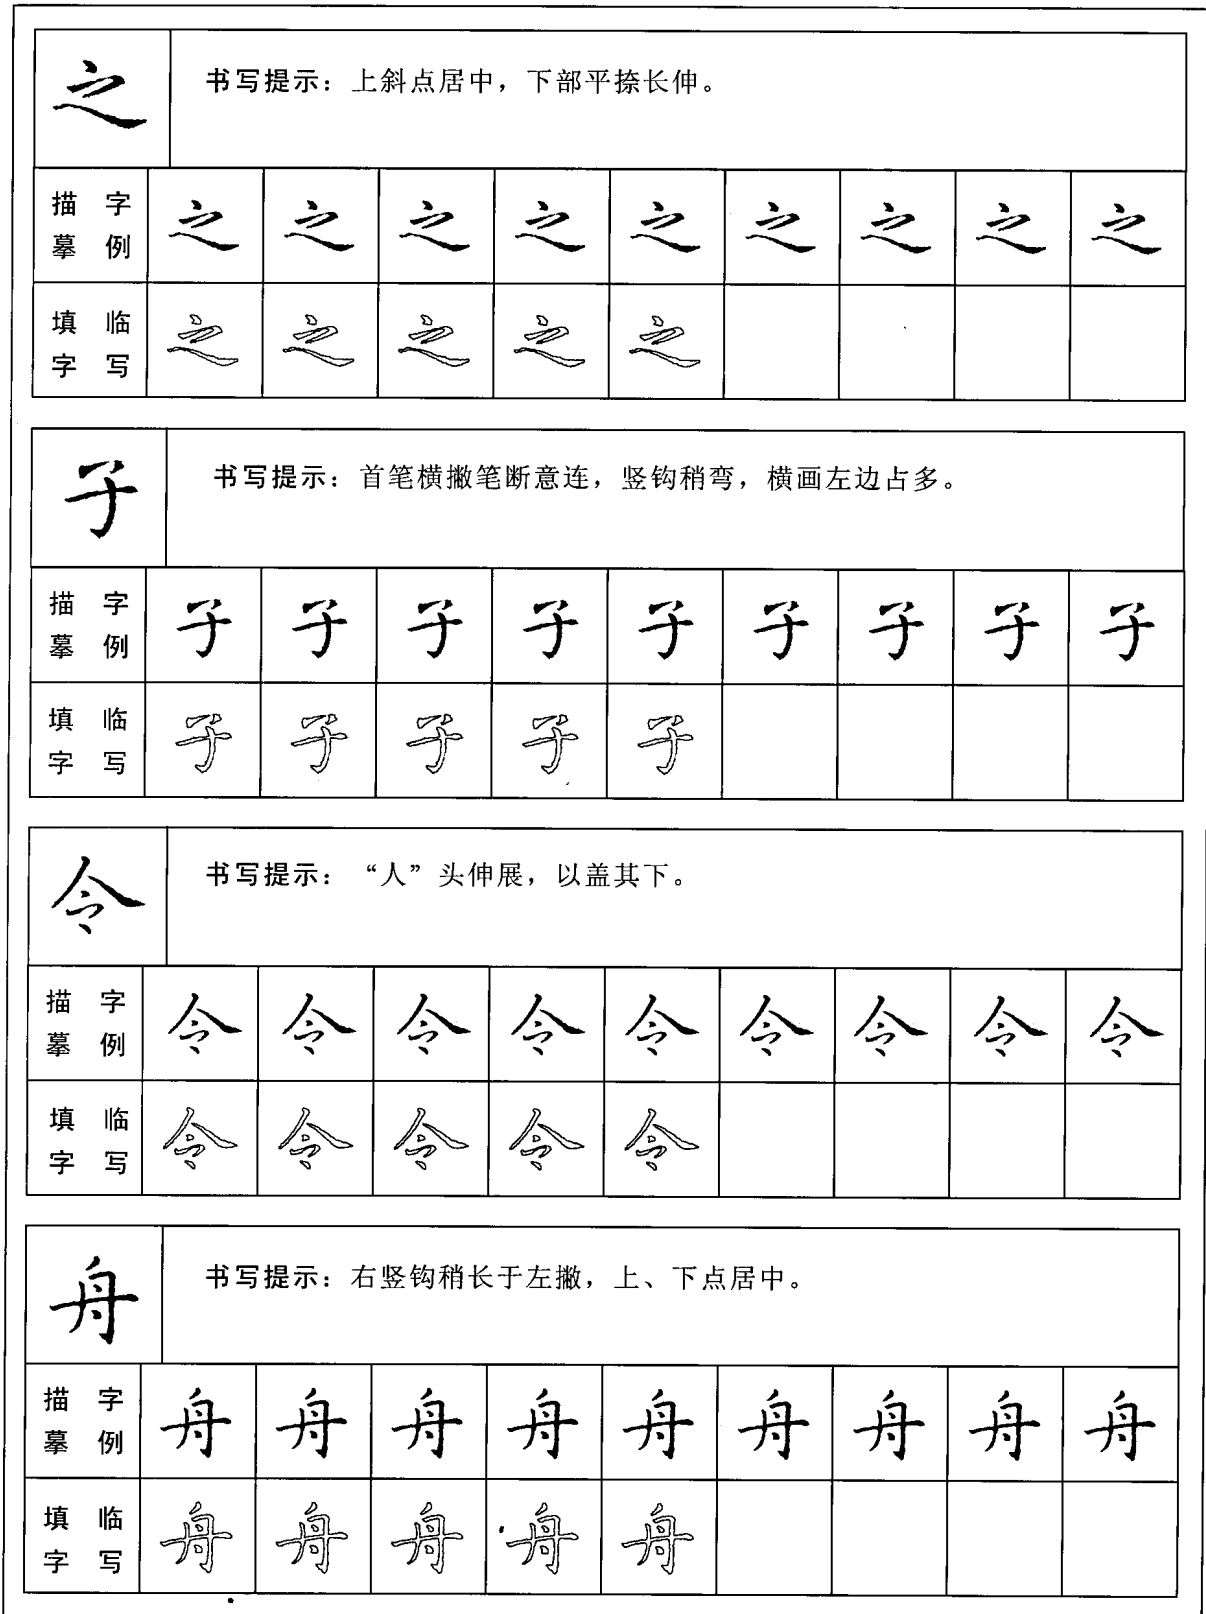 之
书写提示：上斜点居中，下部平捺长伸。
描 字
摹 例
之 之 之 之 之 之 之 之 之
填 临
字 写
之 之 之 之 之
子
书写提示：首笔横撇笔断意连，竖钩稍弯，横画左边占多。
描 字
摹 例
子 子 子 子 子 子 子 子 子
填 临
字 写
子 子 子 子 子
令
书写提示：“人”头伸展，以盖其下。
描 字
摹 例
令 令 令 令 令 令 令 令 令
填 临
字 写
令 令 令 令 令
舟
书写提示：右竖钩稍长于左撇，上、下点居中。
描 字
摹 例
舟 舟 舟 舟 舟 舟 舟 舟 舟
填 临
字 写
舟 舟 舟 舟 舟